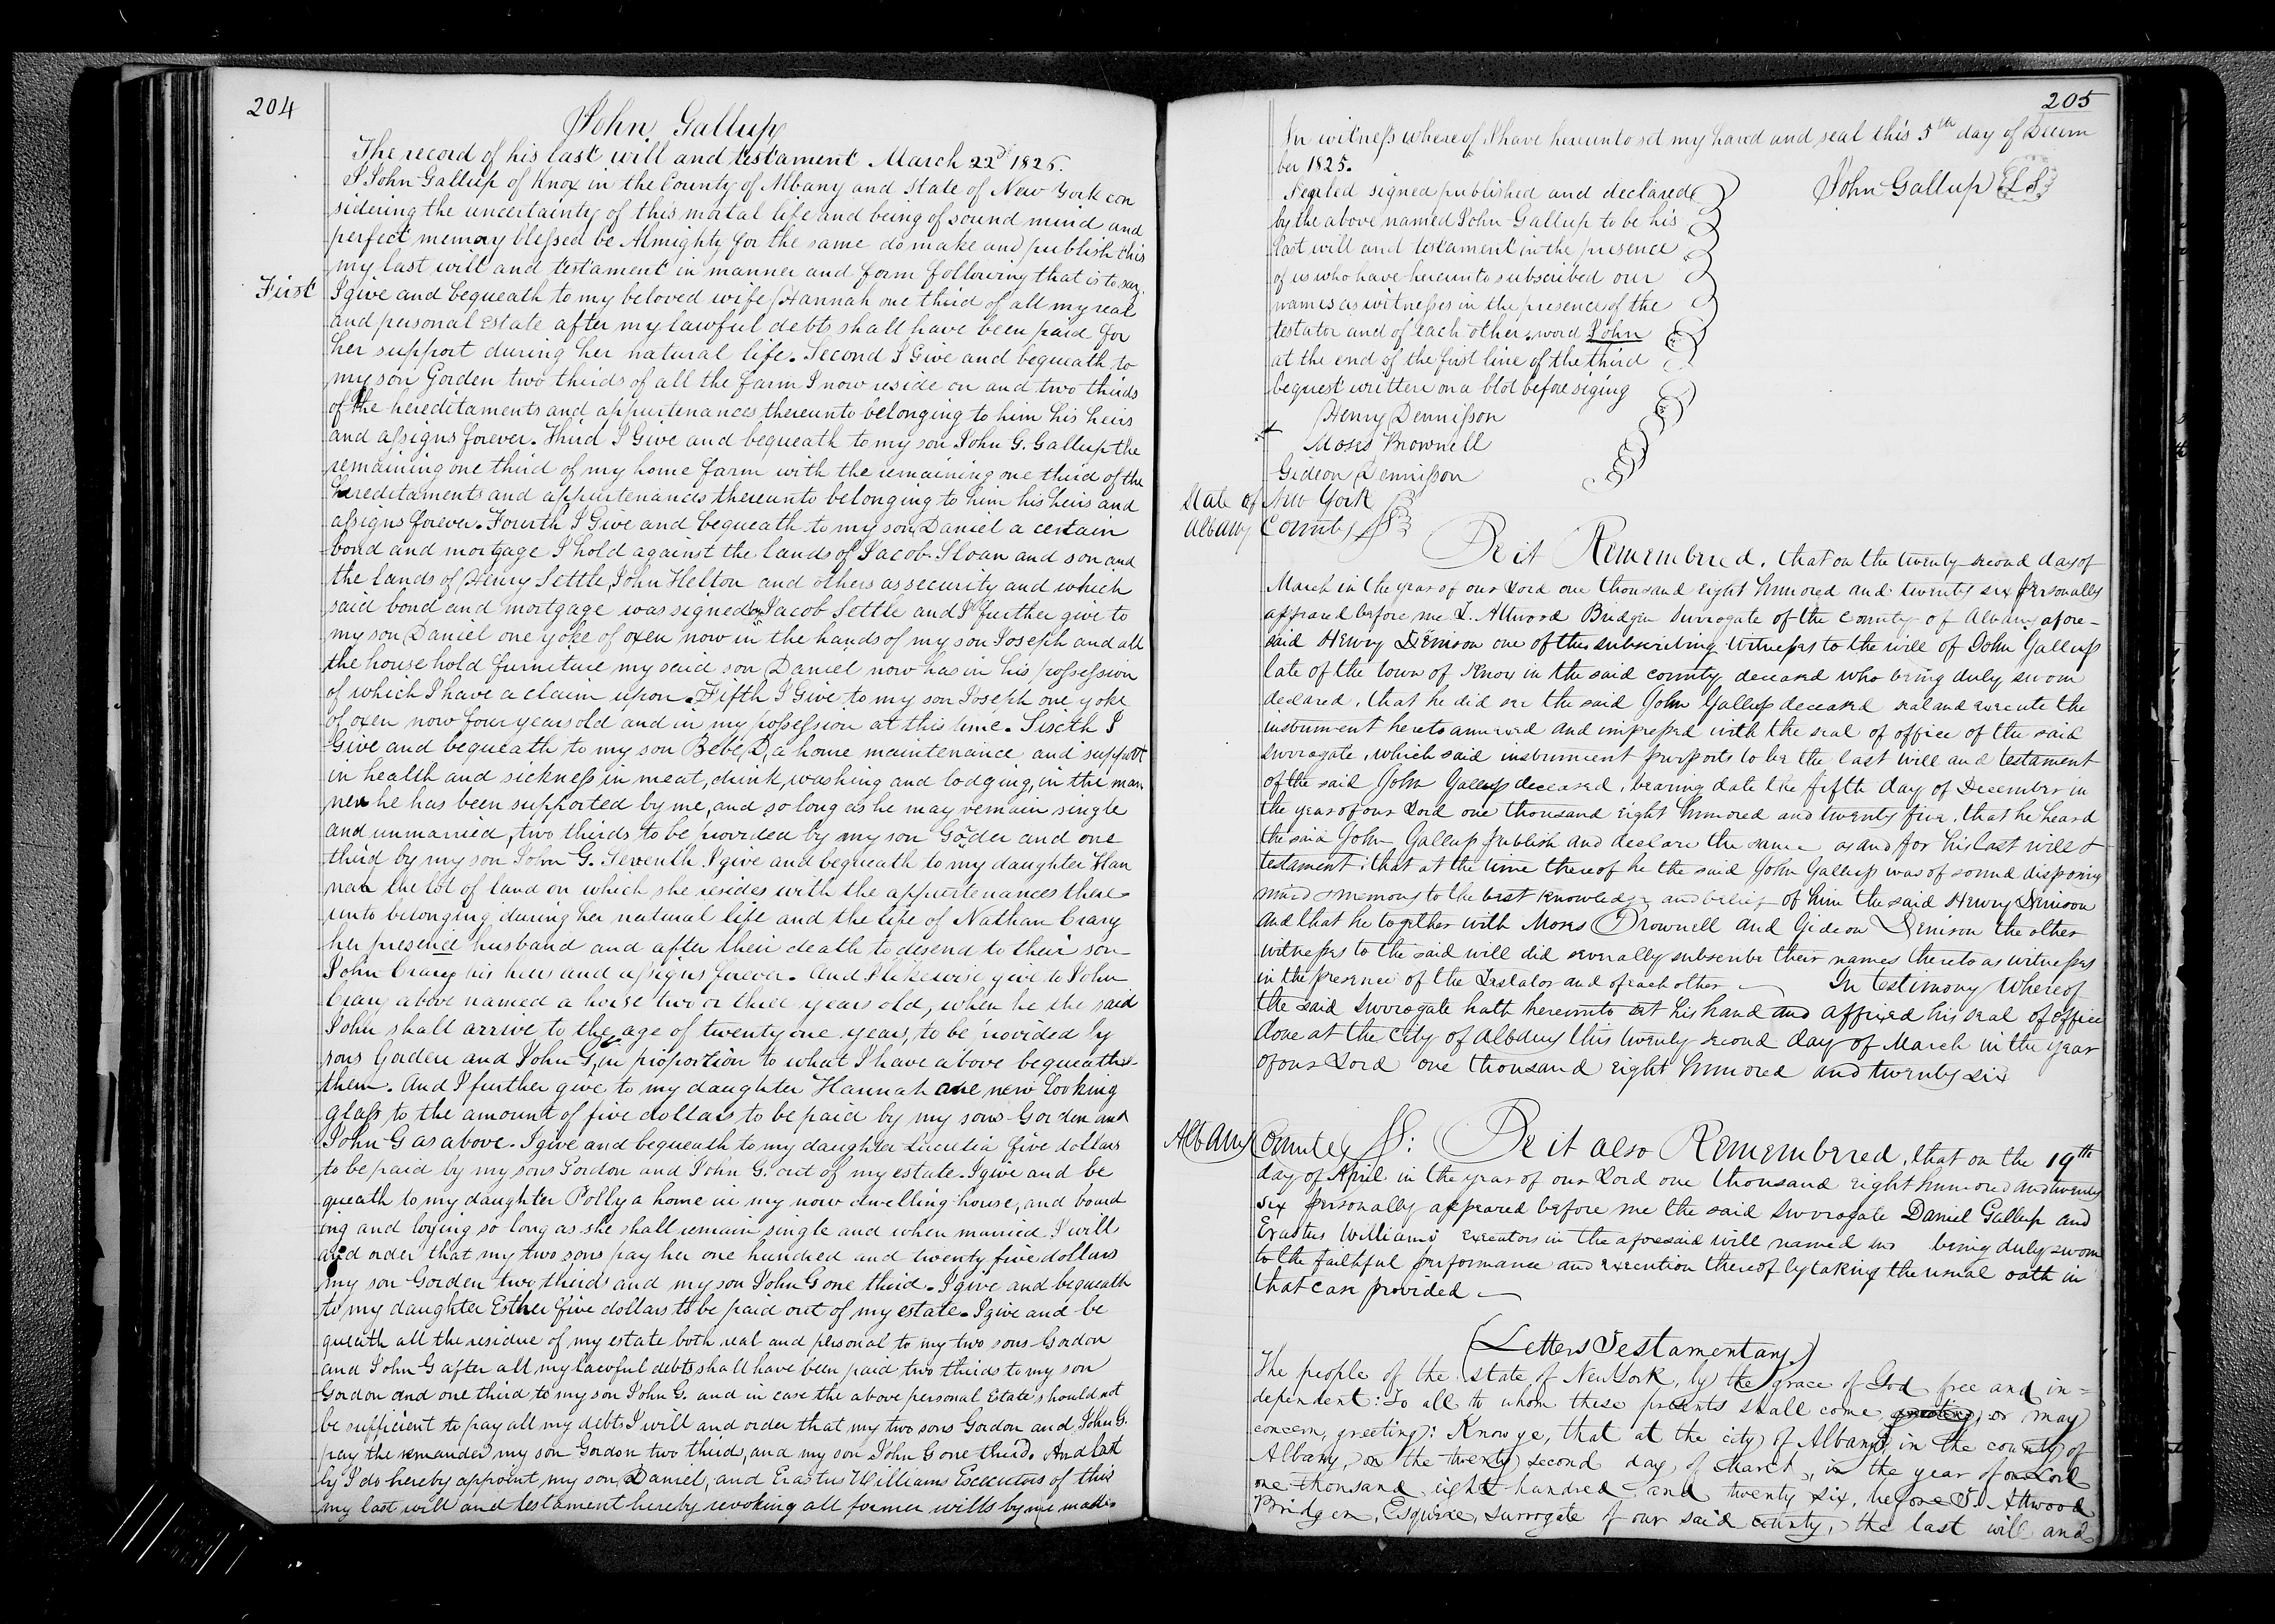 204
John Gallup
The record of his last will and testament March 22d 1826.
I John Gallup of Knox in the County of Albany and State of New York con
sidering the uncertainty of this mortal life and being of sound mind and
perfect memory blessed be Almighty for the same do make and publish this
my last will and testament in manner and form following that is to say.
First I give and bequeath to my beloved wife Hannah one third of all my real
and personal Estate after my lawful debts shall have been paid for
her support during her natural life. Second I Give and bequeath to
my son Gorden two thirds of all the farm I now reside on and two thirds
of the hereditaments and appurtenances thereunto belonging to him his heirs
and assigns forever. Third I Give and bequeath to my son John G. Gallup the
remaining one third of my home farm with the remaining one third of the
hereditaments and appurtenances thereunto belonging to him his heirs and
assigns forever. Fourth I Give and bequeath to my son Daniel a certain
bond and mortgage I hold against the lands of Jacob Sloan and son and
the lands of Henry Settle, John Helton and others as security and which
said bond and mortgage was signed by Jacob Settle and I further give to
my son Daniel one yoke of oxen now in the hands of my son Joseph and all
the house hold furniture my said son Daniel now has in his possession
of which I have a claim upon. Fifth I Give to my son Joseph one yoke
of oxen now four years old and in my possession at this time. Sixth I
Give and bequeath to my son Bebe D, a home maintenance and support
in health and sickness in meat, drink, washing and lodging, in the man
ner he has been supported by me, and so long as he may remain single
and unmarried, two thirds to be provided by my son Goden and one
third by my son John G. Seventh I give and bequeath to my daughter Han
nah the lot of land on which she resides with the appurtenances there
unto belonging during her natural life and the life of Nathan Crary
her presence husband and after their death to desend to their son
John Crary his heirs and assigns forever. And I likewise give to John
Crary above named a horse two or three years old, when he the said
John shall arrive to the age of twenty one years, to be provided by
sons Gorden and John G, in proportion to what I have above bequeathed
them. And I further give to my daughter Hannah one new Looking
glass to the amount of five dollars to be paid by my sons Gorden and
John G as above. I give and bequeath to my daughter Lucretia five dollars
to be paid by my sons Gordon and John G. out of my estate. I give and be
queath to my daughter Polly a home in my now dwelling house, and board
ing and loging so long as she shall remain single and when married I will
and order that my two sons pay her one hundred and twenty five dollars
my son Gorden two thirds and my son John G one third. I give and bequeath
to my daughter Esther five dollars to be paid out of my estate. I give and be
queath all the residue of my estate both real and personal to my two sons Gordon
and John G after all my lawful debts shall have been paid two thirds to my son
Gordon and one third to my son John G. and in case the above personal Estate should not
be sufficient to pay all my debts I will and order that my two sons Gordon and John G.
pay the remainder my son Gordon two third, and my son John G one third. And last
ly I do hereby appoint my son Daniel, and Erastus Williams Executors of this
my last will and testament hereby revoking all former wills by me made.
205
In witness whereof I have hereunto set my hand and seal this 5th day of Decem
ber 1825.
John Gallup L S
Sealed signed published and declared
by the above named John Gallup to be his
last will and testament in the presence
of us who have hereunto subscribed our
names as witnesses in the presence of the
testator and of each other, word John
at the end of the first line of the third
bequest written on a blot before siging
Henry Dennisson
Moses Brownell
Gideon Dennisson
State of New York
Albany County SS
Be it Remembered, that on the twenty second day of
March in the year of our Lord one thousand eight hundred and twenty six personally
appeared before me T. Attwood Bridgen Surrogate of the County of Albany afore-
said Henry Denison one of the subscribing witnesses to the will of John Gallup
late of the town of Knox in the said county deceased who being duly sworn
declared, that he did see the said John Gallup deceased seal and execute the
instrument hereto annexed and impressed with the seal of office of the said
surrogate, which said instrument purports to be the last will and testament
of the said John Gallup deceased, bearing date the fifth day of December in
the year of our Lord one thousand eight hundred and twenty five, that he heard
the said John Gallup publish and declare the same as and for his last will &
testament; that at the time thereof he the said John Gallup was of sound disposing
mind & memory to the best knowledge and belief of him the said Henry Denison
and that he together with Moses Brownell and Gideon Denison the other
witnesses to the said will did severally subscribe their names thereto as witnesses
in the presence of the Testator and of each other — In testimony Whereof
the said Surrogate hath hereunto set his hand and affixed his seal of office
done at the City of Albany this twenty second day of March in the year
of our Lord one thousand eight hundred and twenty six
Albany County SS: Be it also Remembered, that on the 19th
day of April in the year of our Lord one thousand eight hundred and twenty
six personally appeared before me the said Surrogate Daniel Gallup and
Erastus Williams executors in the aforesaid will named who being duly sworn
to the faithful performance and execution thereof by taking the usual oath in
that case provided —
(Letters Testamentary)
The people of the State of New York, by the grace of God free and in=
dependent: To all to whom these presents shall come greeting, or may
concern, greeting: Know ye, that at the city of Albany, in the county of
Albany, on the twenty second day of March, in the year of our Lord
one thousand eight hundred and twenty six, before T. Attwood
Bridgen, Esquire, Surrogate of our said county, the last will and